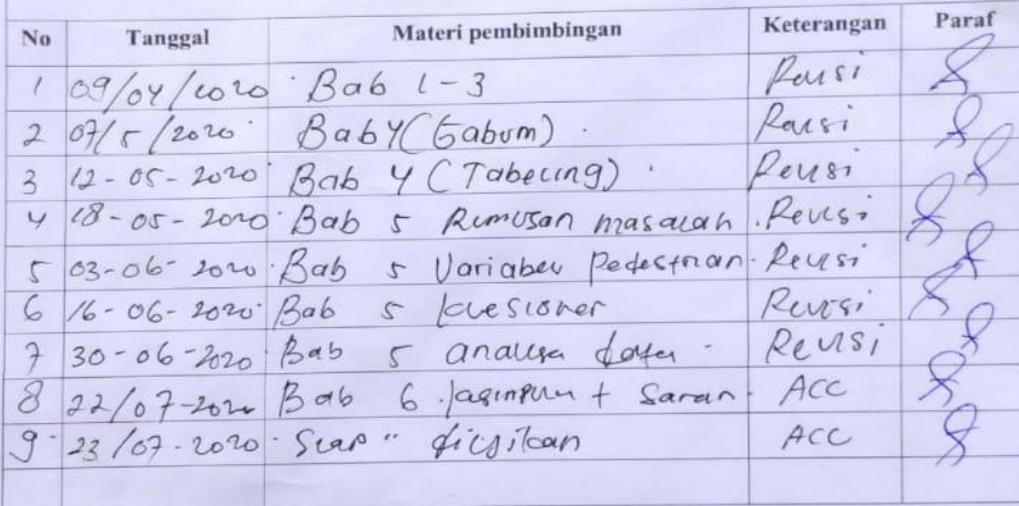 No Tanggal Materi pembimbingan Keterangan Paraf
1 09/04/2020 Bab 1-3 Revisi
2 07/5/2020 Bab 4 (Gabum) Revisi
3 12-05-2020 Bab 4 (Tabecing) Revisi
4 18-05-2020 Bab 5 Rumusan masalah Revisi
5 03-06-2020 Bab 5 Variabel Pedestrian Revisi
6 16-06-2020 Bab 5 kuesioner Revisi
7 30-06-2020 Bab 5 analisa data Revisi
8 22/07-2020 Bab 6 + Saran ACC
9 23/07-2020 Siap " ACC